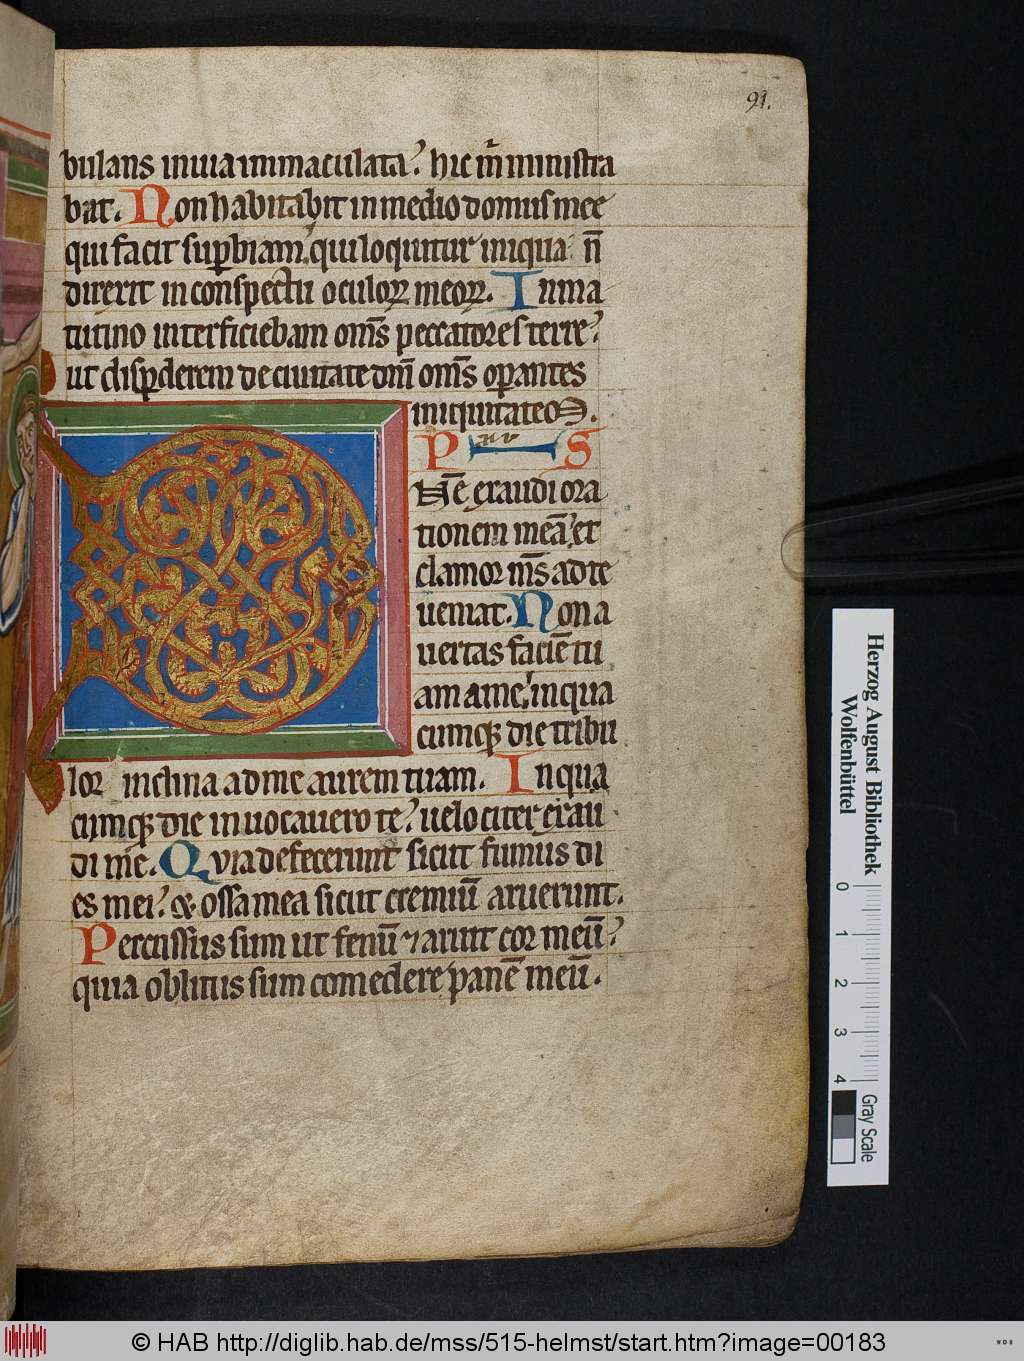 91.
bulans in uia immaculata? hic m̄ ministra
bat. Non habitabit in medio domus mee
qui facit suꝑbiam, qui loquitur iniqua n̄
direxit in conspectu oculoꝝ meoꝝ. In ma
tutino interficiebam om̄s peccatores terre?
ut disꝑderem de ciuitate dn̄i om̄s oꝑantes
iniquitateM.
P S
Nē exaudi ora
tionem meā, et
clamor m̄s ad te
ueniat. Non a
uertas faciē tu
am a me, in qua
cumqꝫ die tribu
lor inclina ad me aurem tuam. In qua
cumqꝫ die inuocauero te? uelociter exau
di me. Quia defecerunt sicut fumus di
es mei? & ossa mea sicut cremiū aruerunt.
Percussus sum ut fenū ⁊ aruit cor meū?
quia oblitus sum comedere panē meū.
Herzog August Bibliothek
Wolfenbüttel
0 1 2 3 4
Gray Scale
© HAB http://diglib.hab.de/mss/515-helmst/start.htm?image=00183